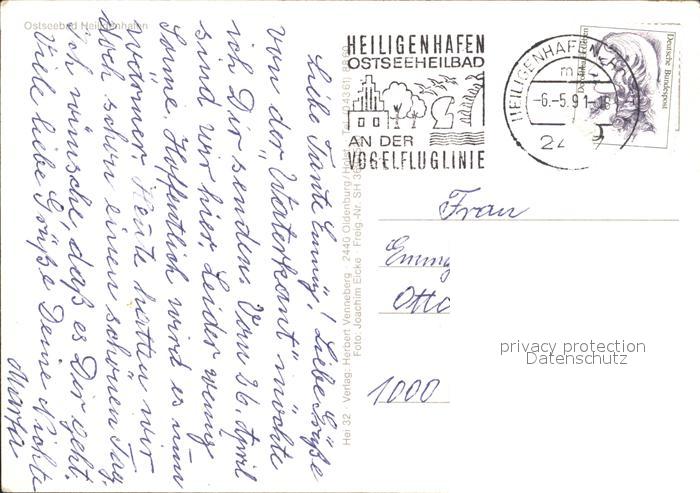 Ostseebad Heiligenhafen
Liebe Tante Emmy! Liebe Grüße
von der "Waterkant" möchte
ich Dir senden. Vom 26. April
sind wir hier. Leider wenig
Sonne. Hoffentlich wird es nun
wärmer. Heute hatten wir
doch schon einen schönen Tag.
Ich wünsche, daß es Dir geht.
Viele liebe Grüße Deine Nichte
Marta
Hei 32 Verlag: Herbert Venneberg 2440 Oldenburg/Holst. Tel. (04361)
Foto: Joachim Eicke · Freig.-Nr. SH
HEILIGENHAFEN
OSTSEEHEILBAD
AN DER
VOGELFLUGLINIE
HEILIGENHAFEN
-6.-5.91-18
Deutsche Bundespost
Frau
Emmy
Otto
1000
privacy protection
Datenschutz